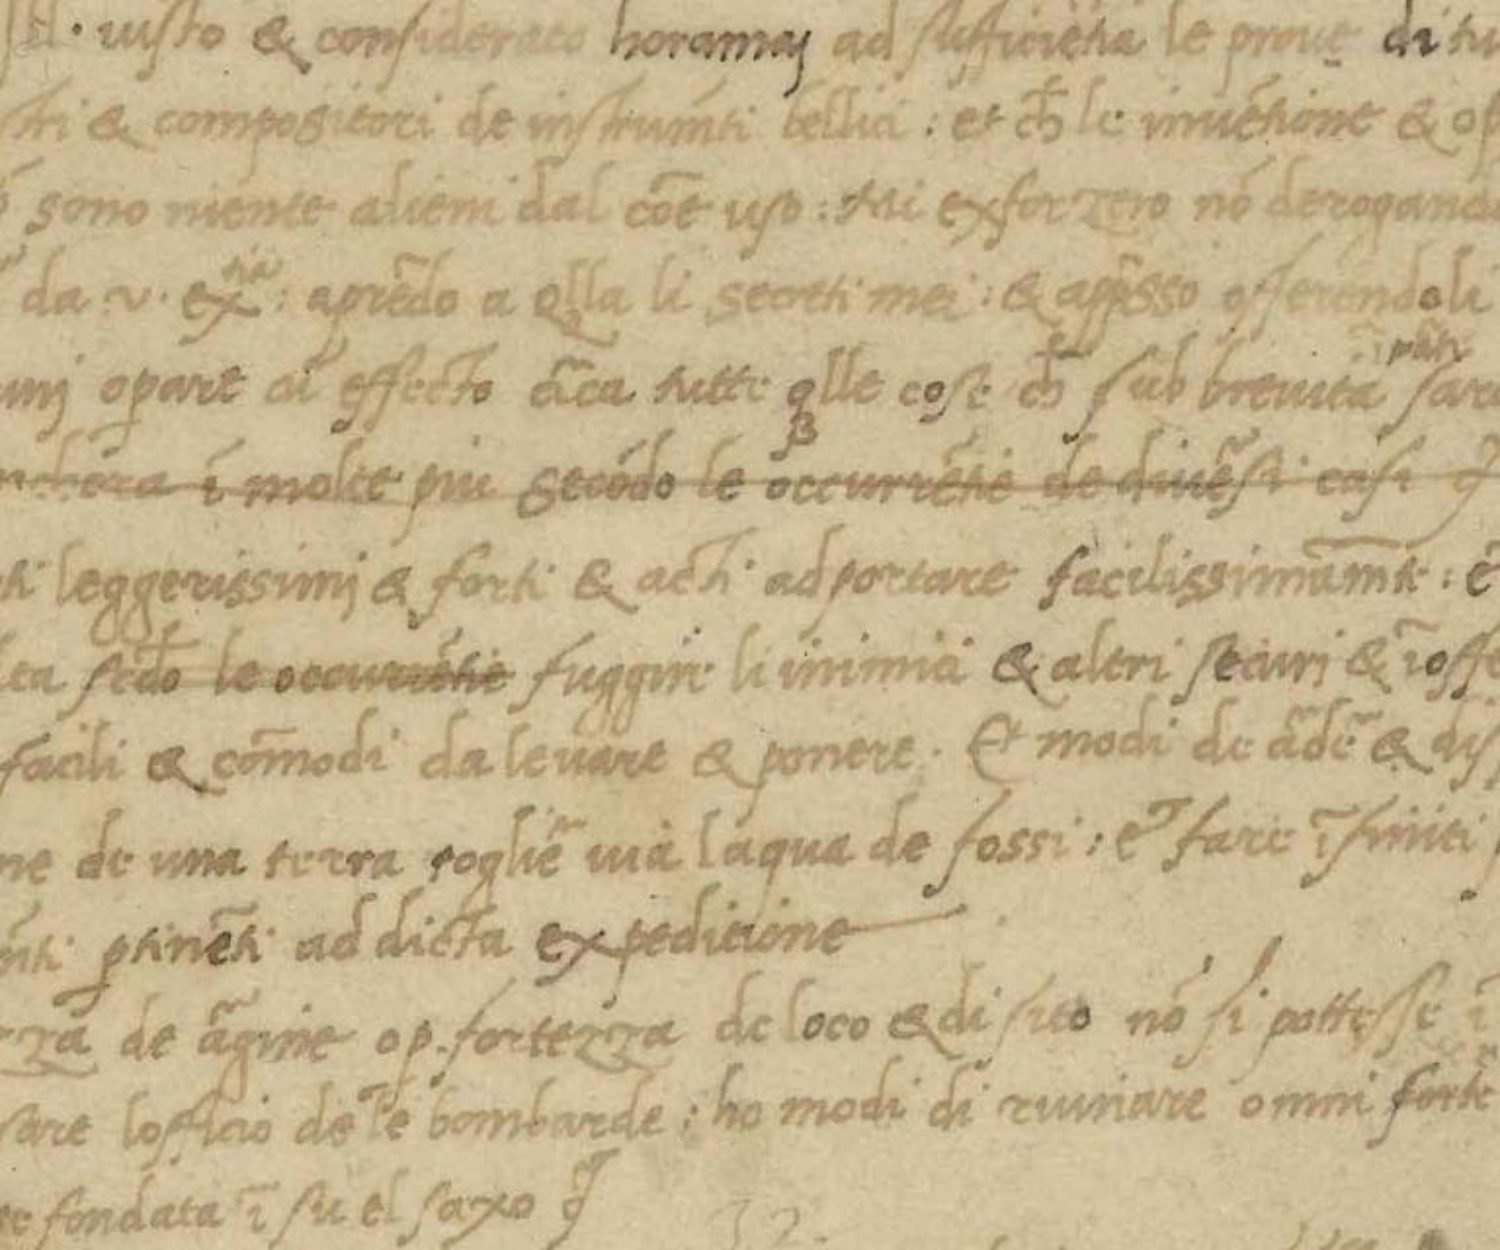 Ill. visto & considerato horamaj ad sufficiētia le prove di tu
stri & compositori de instrumēti bellici : et ch̄ le invētione & op
ō sono niente alieni dal cōe uso : Mi exforzero nō derogando
da v. ex.tia : aprēdo a qlla li secreti mei : & appsso offerendoli
unj oparare cū effecto circa tutte qlle cose ch̄ sub brevità ī pte sara
anchora ī molte piu secōdo le occurrētie de divēsi casi
ti leggerissimj & forti & acti ad portare facilissimamēte : et
lta secōdo le occurrētie fuggire li inimici & altri securj & ī offe
facili & cōmodi da levare & ponere. Et modi de ārdē & dis
ne de una terra toglie via laqua de fossi : et fare īfiniti
mēti ptinēti ad dicta expeditione
zza de āgine o p. fortezza de loco & di sito nō si pottesse ī
sare lofficio dele bombarde : ho modi di ruinare omni forte
fondata ī su el saxo
32.